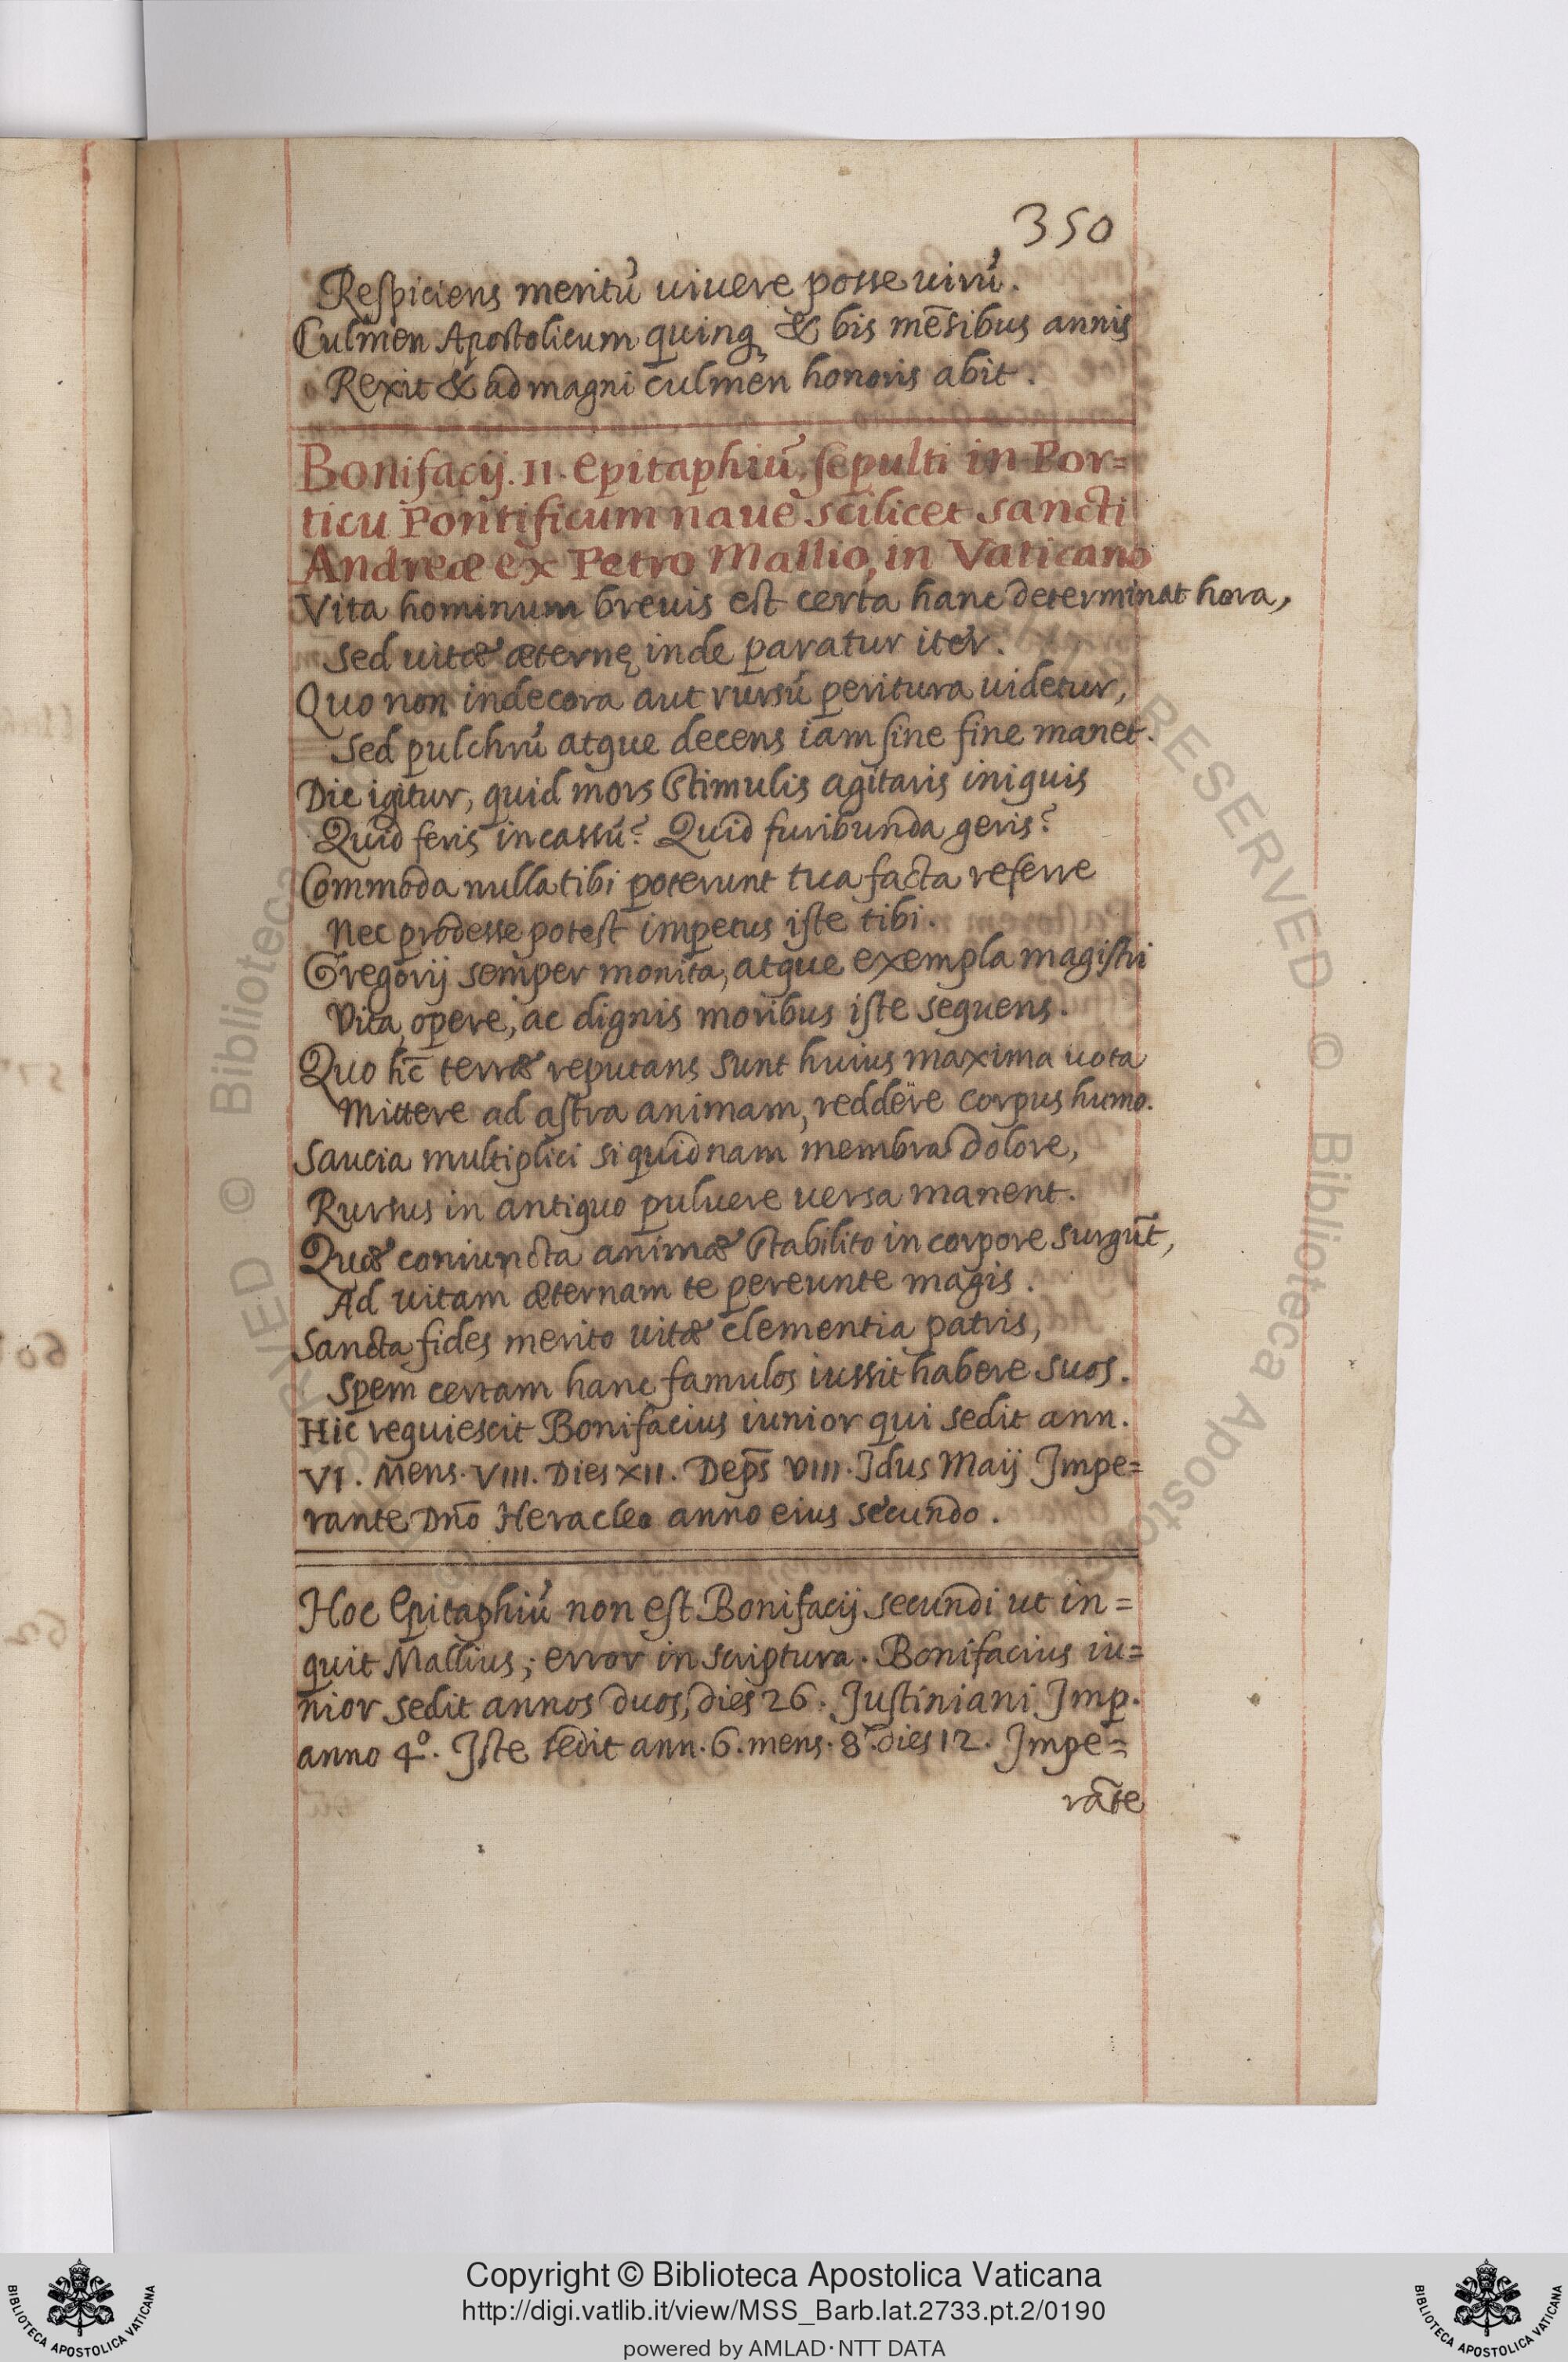 350
Respiciens meritũ uiuere posse uirũ.
Culmen Apostolicum quinq, & bis mẽsibus annis
Rexit & ad magni culmen honoris abit.
Bonifacij. II. epitaphiũ, sepulti in Por=
ticu Pontificum naue scilicet sancti
Andreæ ex Petro Mallio, in Vaticano
Vita hominum breuis est certa hanc determinat hora,
Sed uitæ æternę inde paratur iter.
Quo non indecora aut rursũ peritura uidetur,
Sed pulchrũ atque decens iam sine fine manet.
Dic igitur, quid mors stimulis agitaris iniquis
Quid feris incassũ? Quid furibunda geris?
Commoda nulla tibi poterunt tua facta referre
Nec prodesse potest impetus iste tibi.
Gregorij semper monita, atque exempla magistri
Vita, opere, ac dignis moribus iste sequens.
Quo hc̄ terræ reputans sunt huius maxima uota
Mittere ad astra animam, reddere corpus humo.
Saucia multiplici siquidnam membra dolore,
Rursus in antiquo puluere uersa manent.
Quæ coniuncta animæ stabilito in corpore surgũt,
Ad uitam æternam te pereunte magis.
Sancta fides merito uitæ clementia patris,
Spem certam hanc famulos iussit habere suos.
Hic requiescit Bonifacius iunior qui sedit ann.
VI. Mens. VIII. Dies XII. Dep̄s VIII. Idus Maij Impe=
rante Dño Heracleo anno eius secundo.
Hoc Epitaphiũ non est Bonifacij secundi ut in=
quit Mallius; error in scriptura. Bonifacius iu=
nior sedit annos duos, dies 26. Justiniani Imp.
anno 4º. Iste sedit ann. 6. mens. 8. dies 12. Impe=
rãte
RESERVED © Biblioteca Aposto
RVED © Biblioteca
Copyright © Biblioteca Apostolica Vaticana
http://digi.vatlib.it/view/MSS_Barb.lat.2733.pt.2/0190
powered by AMLAD·NTT DATA
BIBLIOTECA APOSTOLICA VATICANA
BIBLIOTECA APOSTOLICA VATICANA